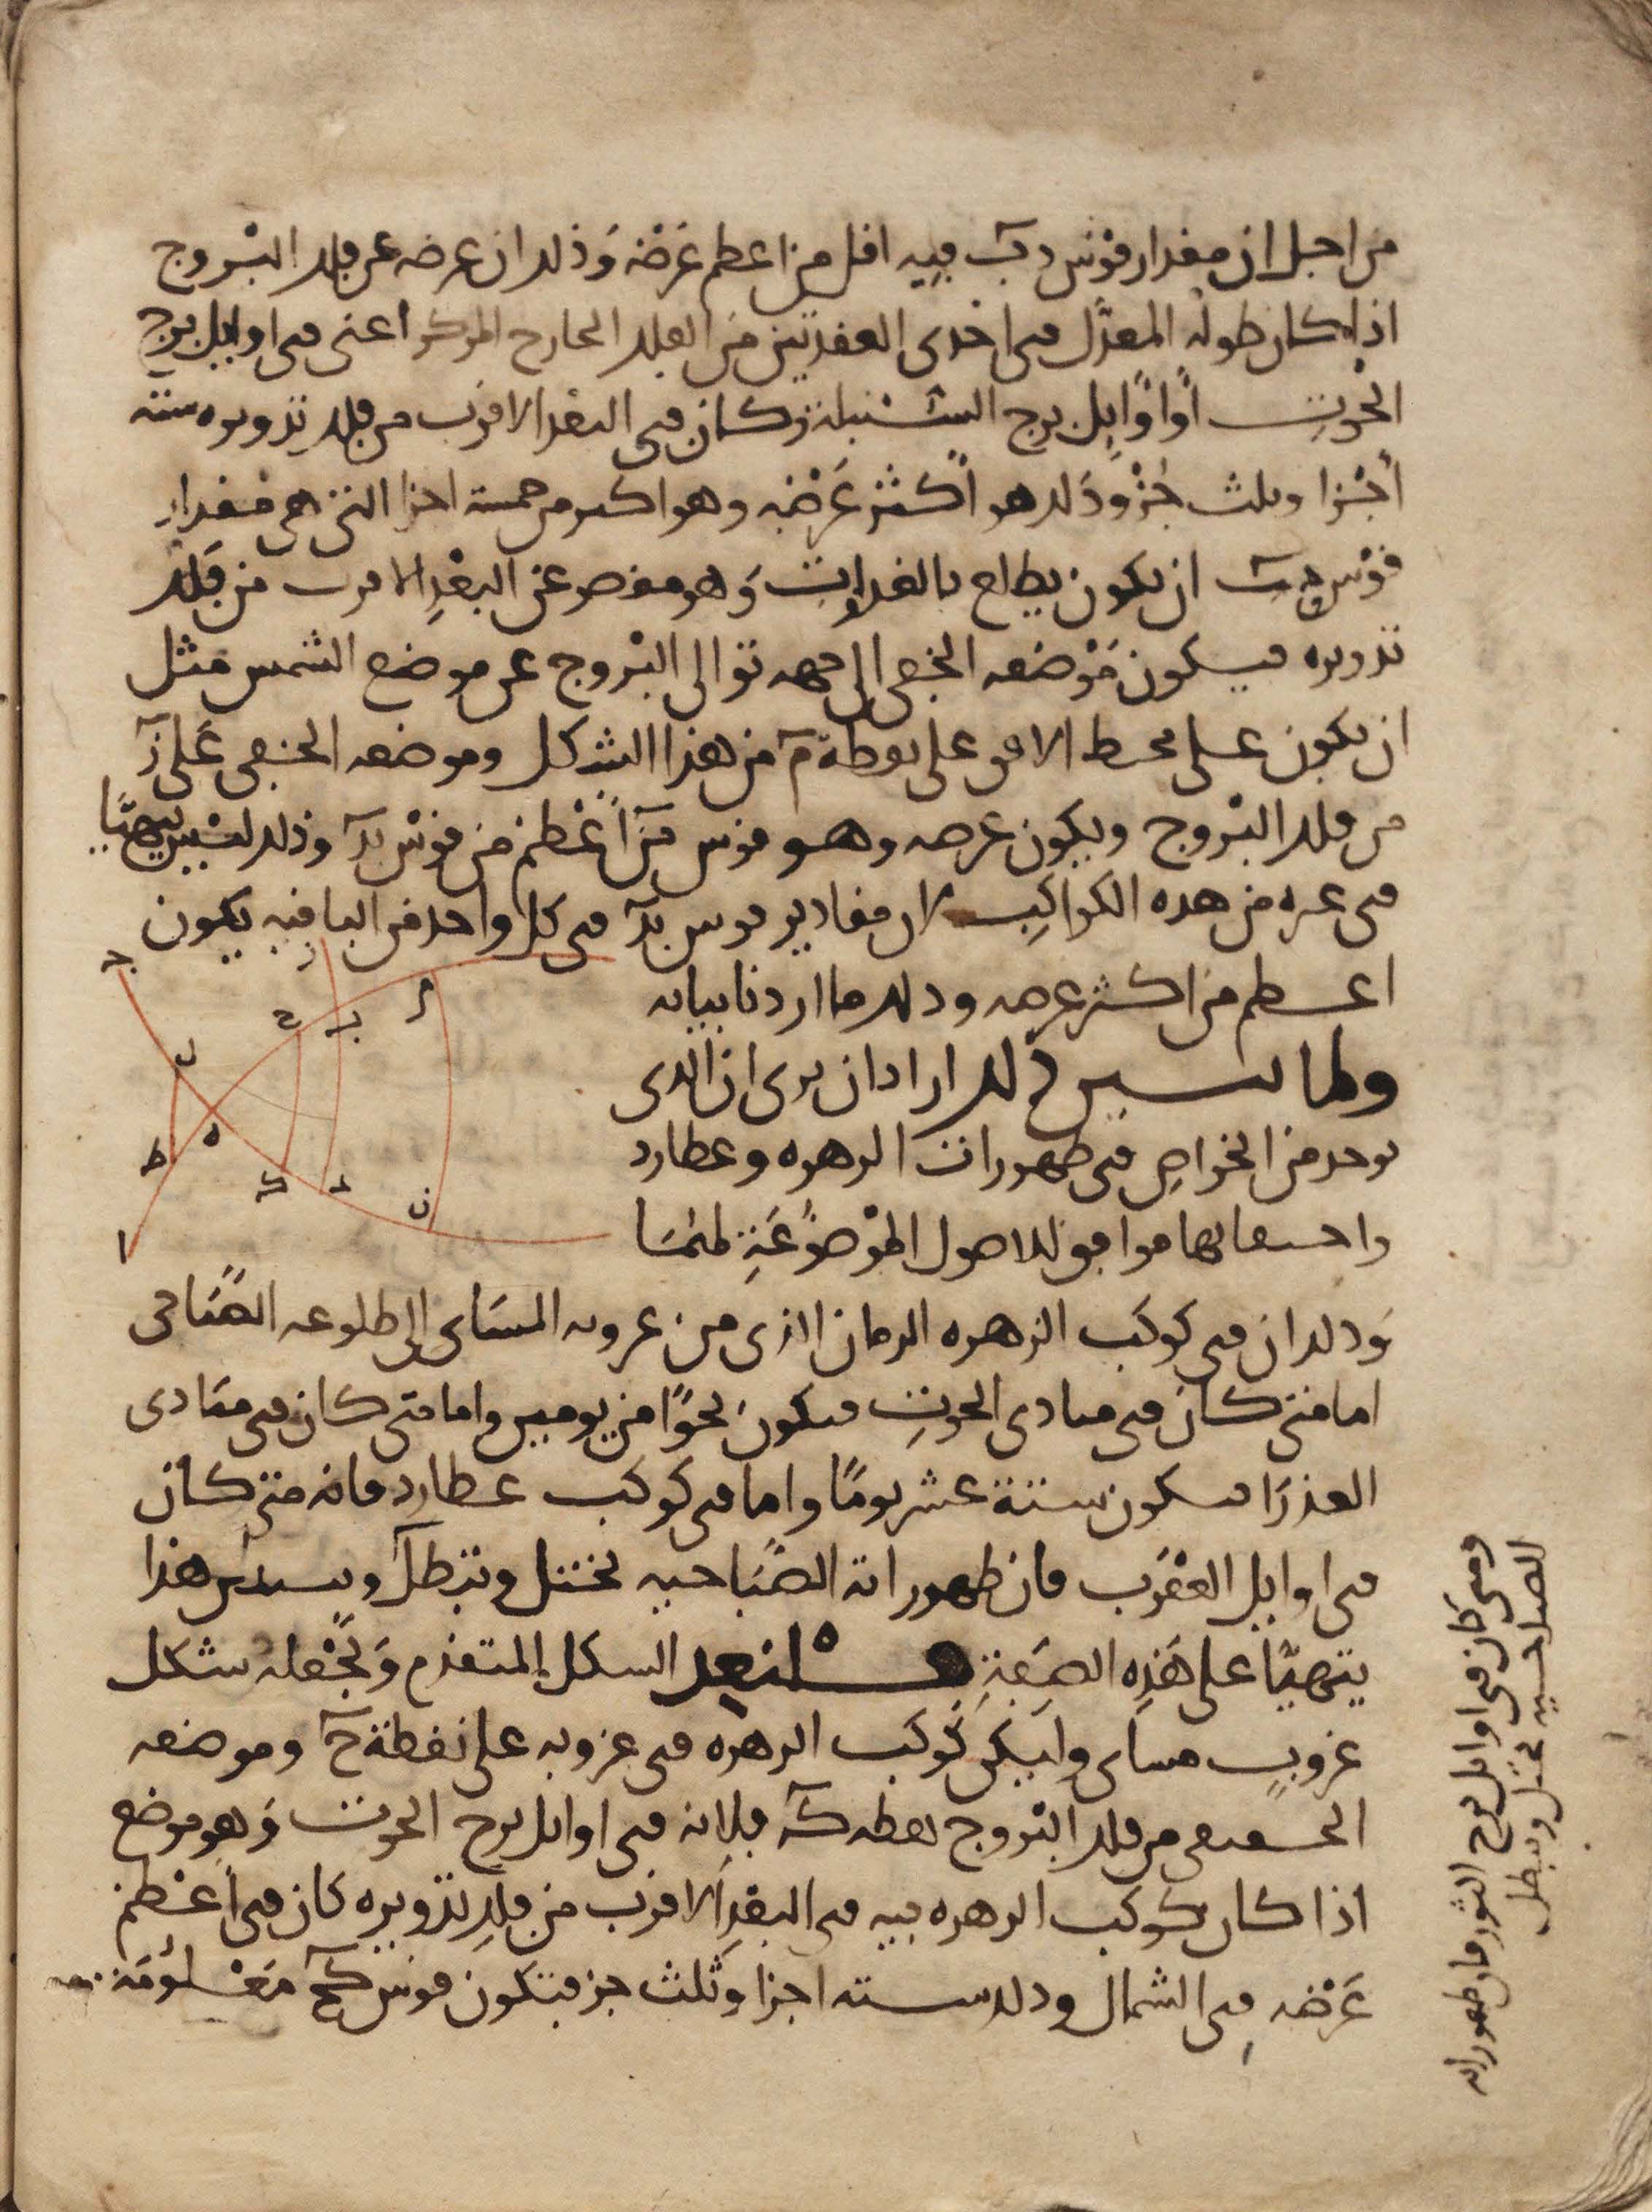 من اجل ان مقدار قوس دب فيه اقل من اعظم عرضه وذلك ان عرضه عن فلك البروج
اذا كان طوله المعدل في احدى العقدتين من الفلك الخارج المركز اعني في اوايل برج
الحوت او اوايل برج السنبلة وكان في البعد الاقرب من فلك تدويره ستة
أجزا وثلث جزو وذلك هو أكثر عرضه وهو اكبر من خمسة اجزا التي هي مقدار
قوس دب ان يكون يطلع بالغدوات وهو مقصر عن البعد الاقرب من فلك
تدويره فيكون موضعه الحقيقي الى جهة توالي البروج عن موضع الشمس مثل
ان يكون على محيط الافق على نقطة م من هذا الشكل وموضعه الحقيقي على ن
من فلك البروج ويكون عرضه وهو قوس من أعظم من قوس بد وذلك ليس يتهيأ
في غيره من هذه الكواكب لان مقادير قوس بد في كل واحد من الباقية يكون
اعظم من اكثر عرضه وذلك ما اردنا بيانه
ولما تبين ذلك اراد ان يرى ان الذي
يوجد من الخواص في ظهورات الزهره وعطارد
واختفايهما موافق للاصول الموضوعة لهما
وذلك ان في كوكب الزهره الزمان الذي من غروبه المساى الى طلوعه الصباحى
اما متى كان في مبادى الحوت فيكون نحوا من يومين واما متى كان في مبادى
العذرا فيكون ستة عشر يوما واما في كوكب عطارد فانه متى كان
في اوايل العقرب فان ظهوراته الصباحيه تختل وتبطل وتبين هذا
يتهيأ على هذه الصفة فلنعد الشكل المتقدم ونجعله شكل
غروب مساى وليكن كوكب الزهره في غروبه على نقطة ح وموضعه
الحقيقي من فلك البروج نقطة ك فلانه في اوايل برج الحوت وهو موضع
اذا كان كوكب الزهره فيه في البعد الاقرب من فلك تدويره كان في أعظم
عرضه في الشمال وذلك ستة اجزا وثلث جز فتكون قوس كح معلومة
ج
ز
م
ح
ب
ل
ه
ط
ك
د
ن
ا
ومتى كان في اوايل برج الثور فان ظهوراته
الصباحيه تختل وتبطل